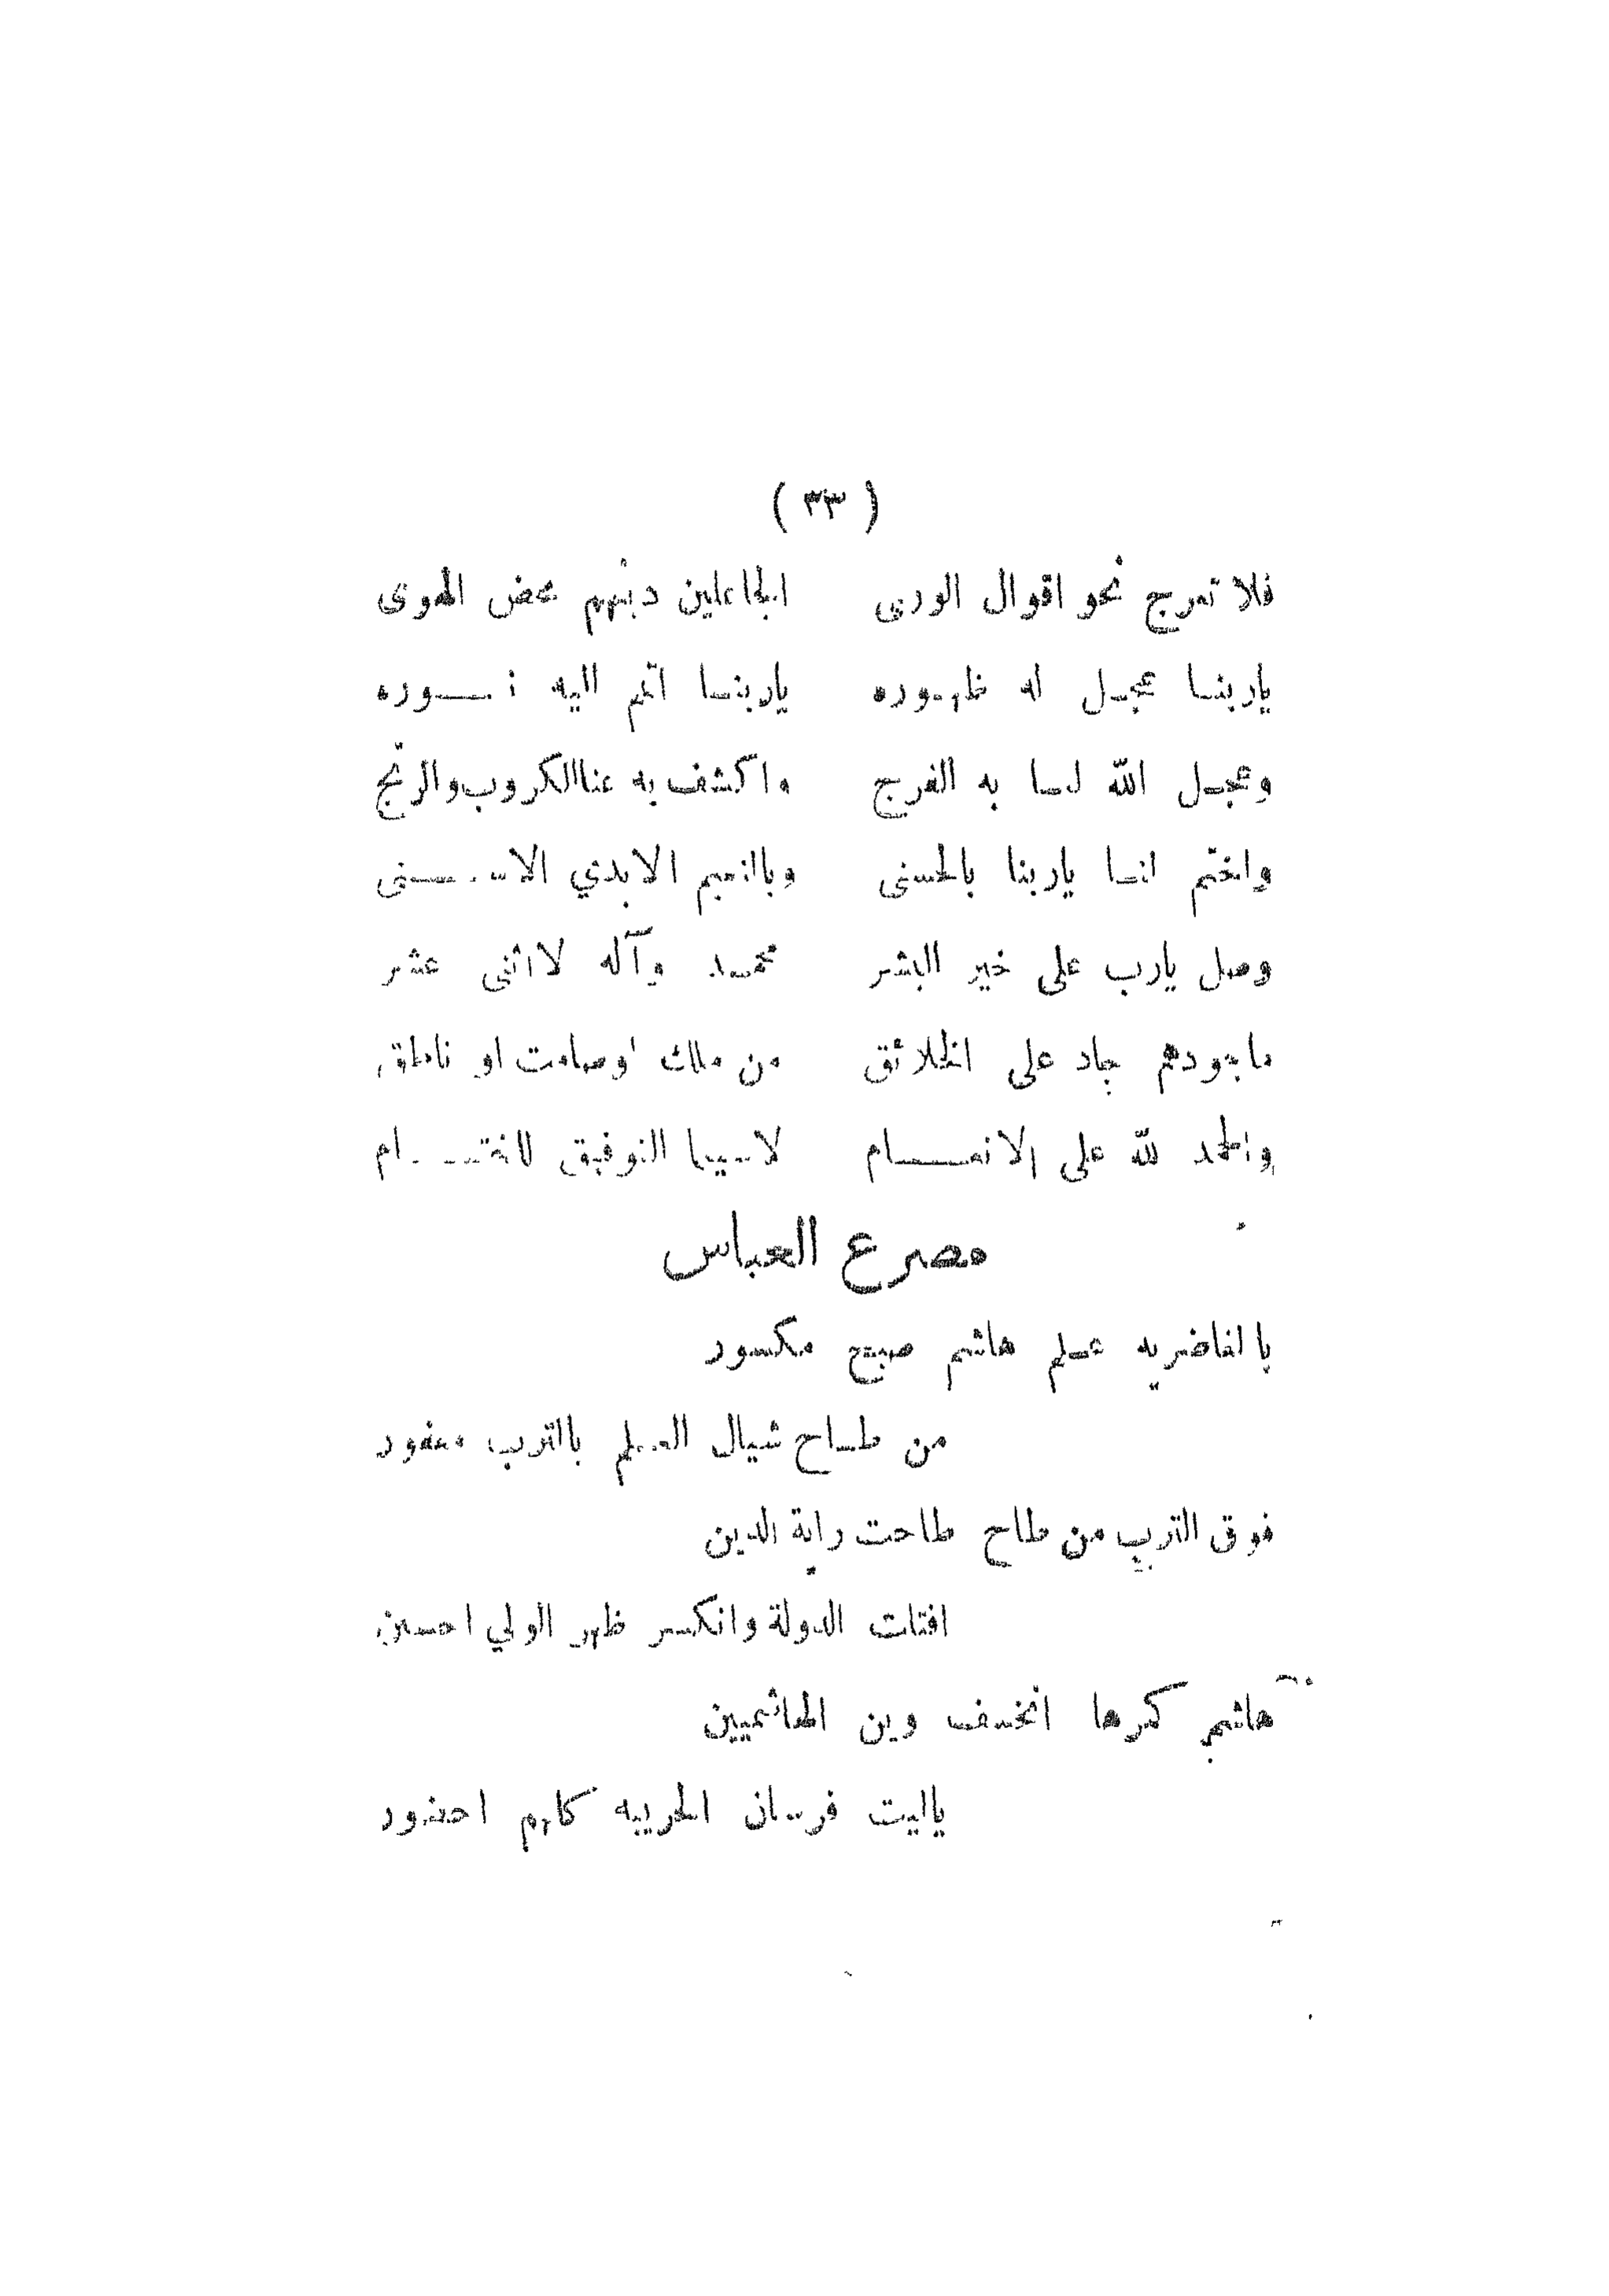 ( ٣٣ )
فلا تعرج نحو اقوال الورى الجاعلين دينهم محض الهوى
ياربنا عجل له ظهوره ياربنا اتمم اليه نوره
وعجل الله لنا به الفرج واكشف به عنا الكروب والرتج
واختم لنا ياربنا بالحسنى وبالنعيم الابدي الاسنى
وصل يارب على خير البشر محمد وآله لاثنى عشر
ماجودهم جاد على الخلائق من ملك اوصامت او ناطق
والحمد لله على الانعام لاسيما التوفيق للختام
مصرع العباس
بالغاضريه علم هاشم صبح مكسور
من طاح شيال العلم بالترب معفور
فوق الترب من طاح طاحت راية الدين
افتلت الدولة وانكسر ظهر الولي احسين
هاشم كمرها انخسف وين الهاشميين
ياليت فرسان الحريبه كلهم احضور